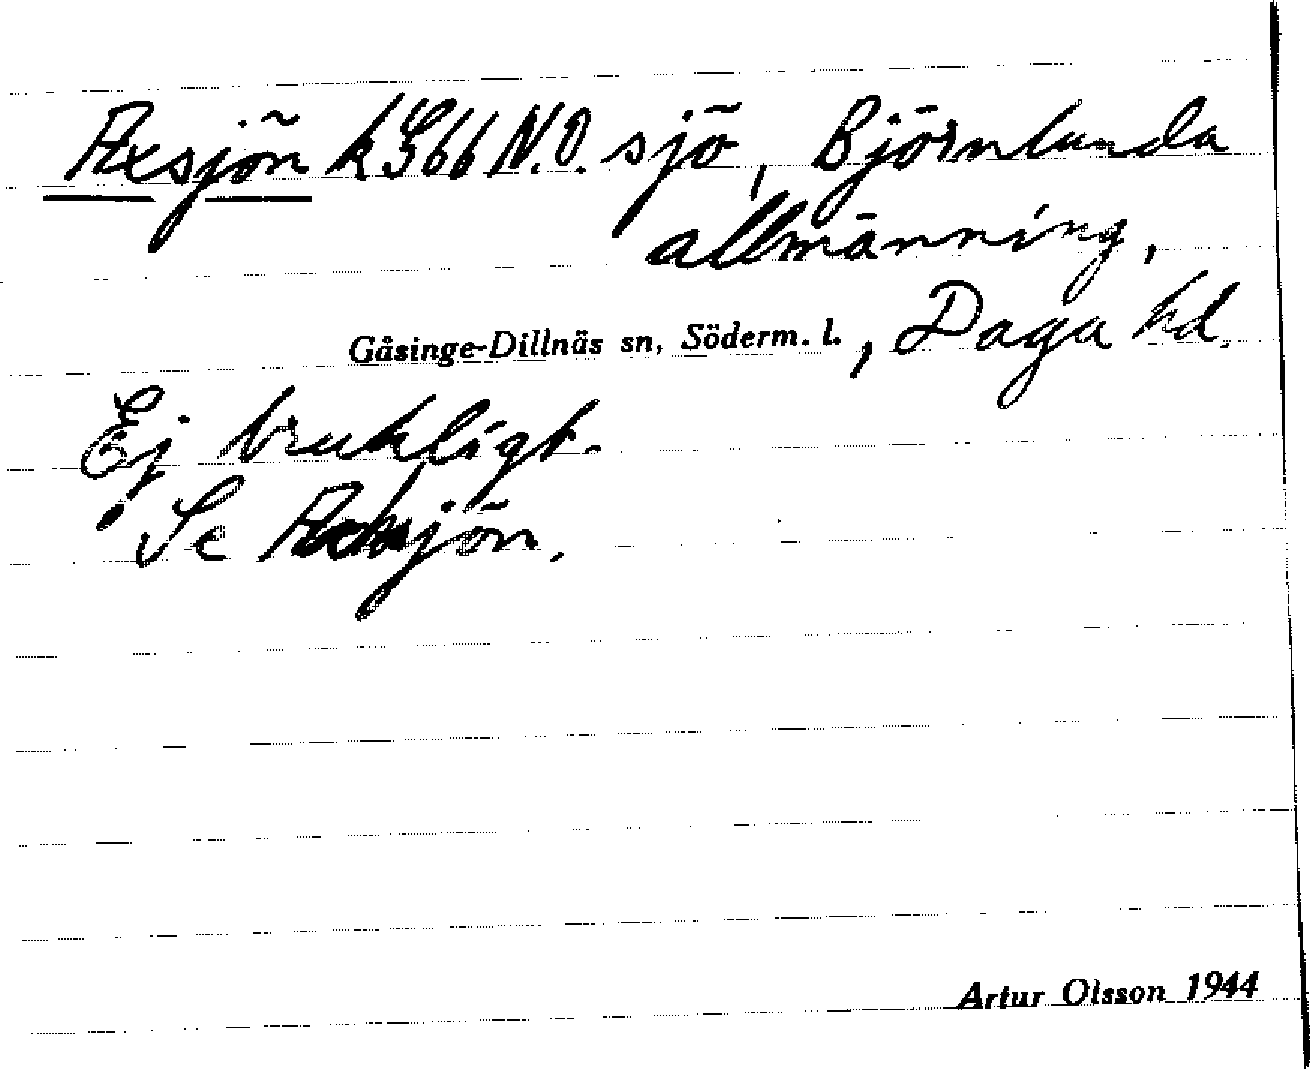 Axsjön k G66 N.O. sjö, Björnlunda
allmänning,
Gåsinge-Dillnäs sn, Söderm. l., Daga hd.
Ej brukligt.
Se
Artur Olsson 1944